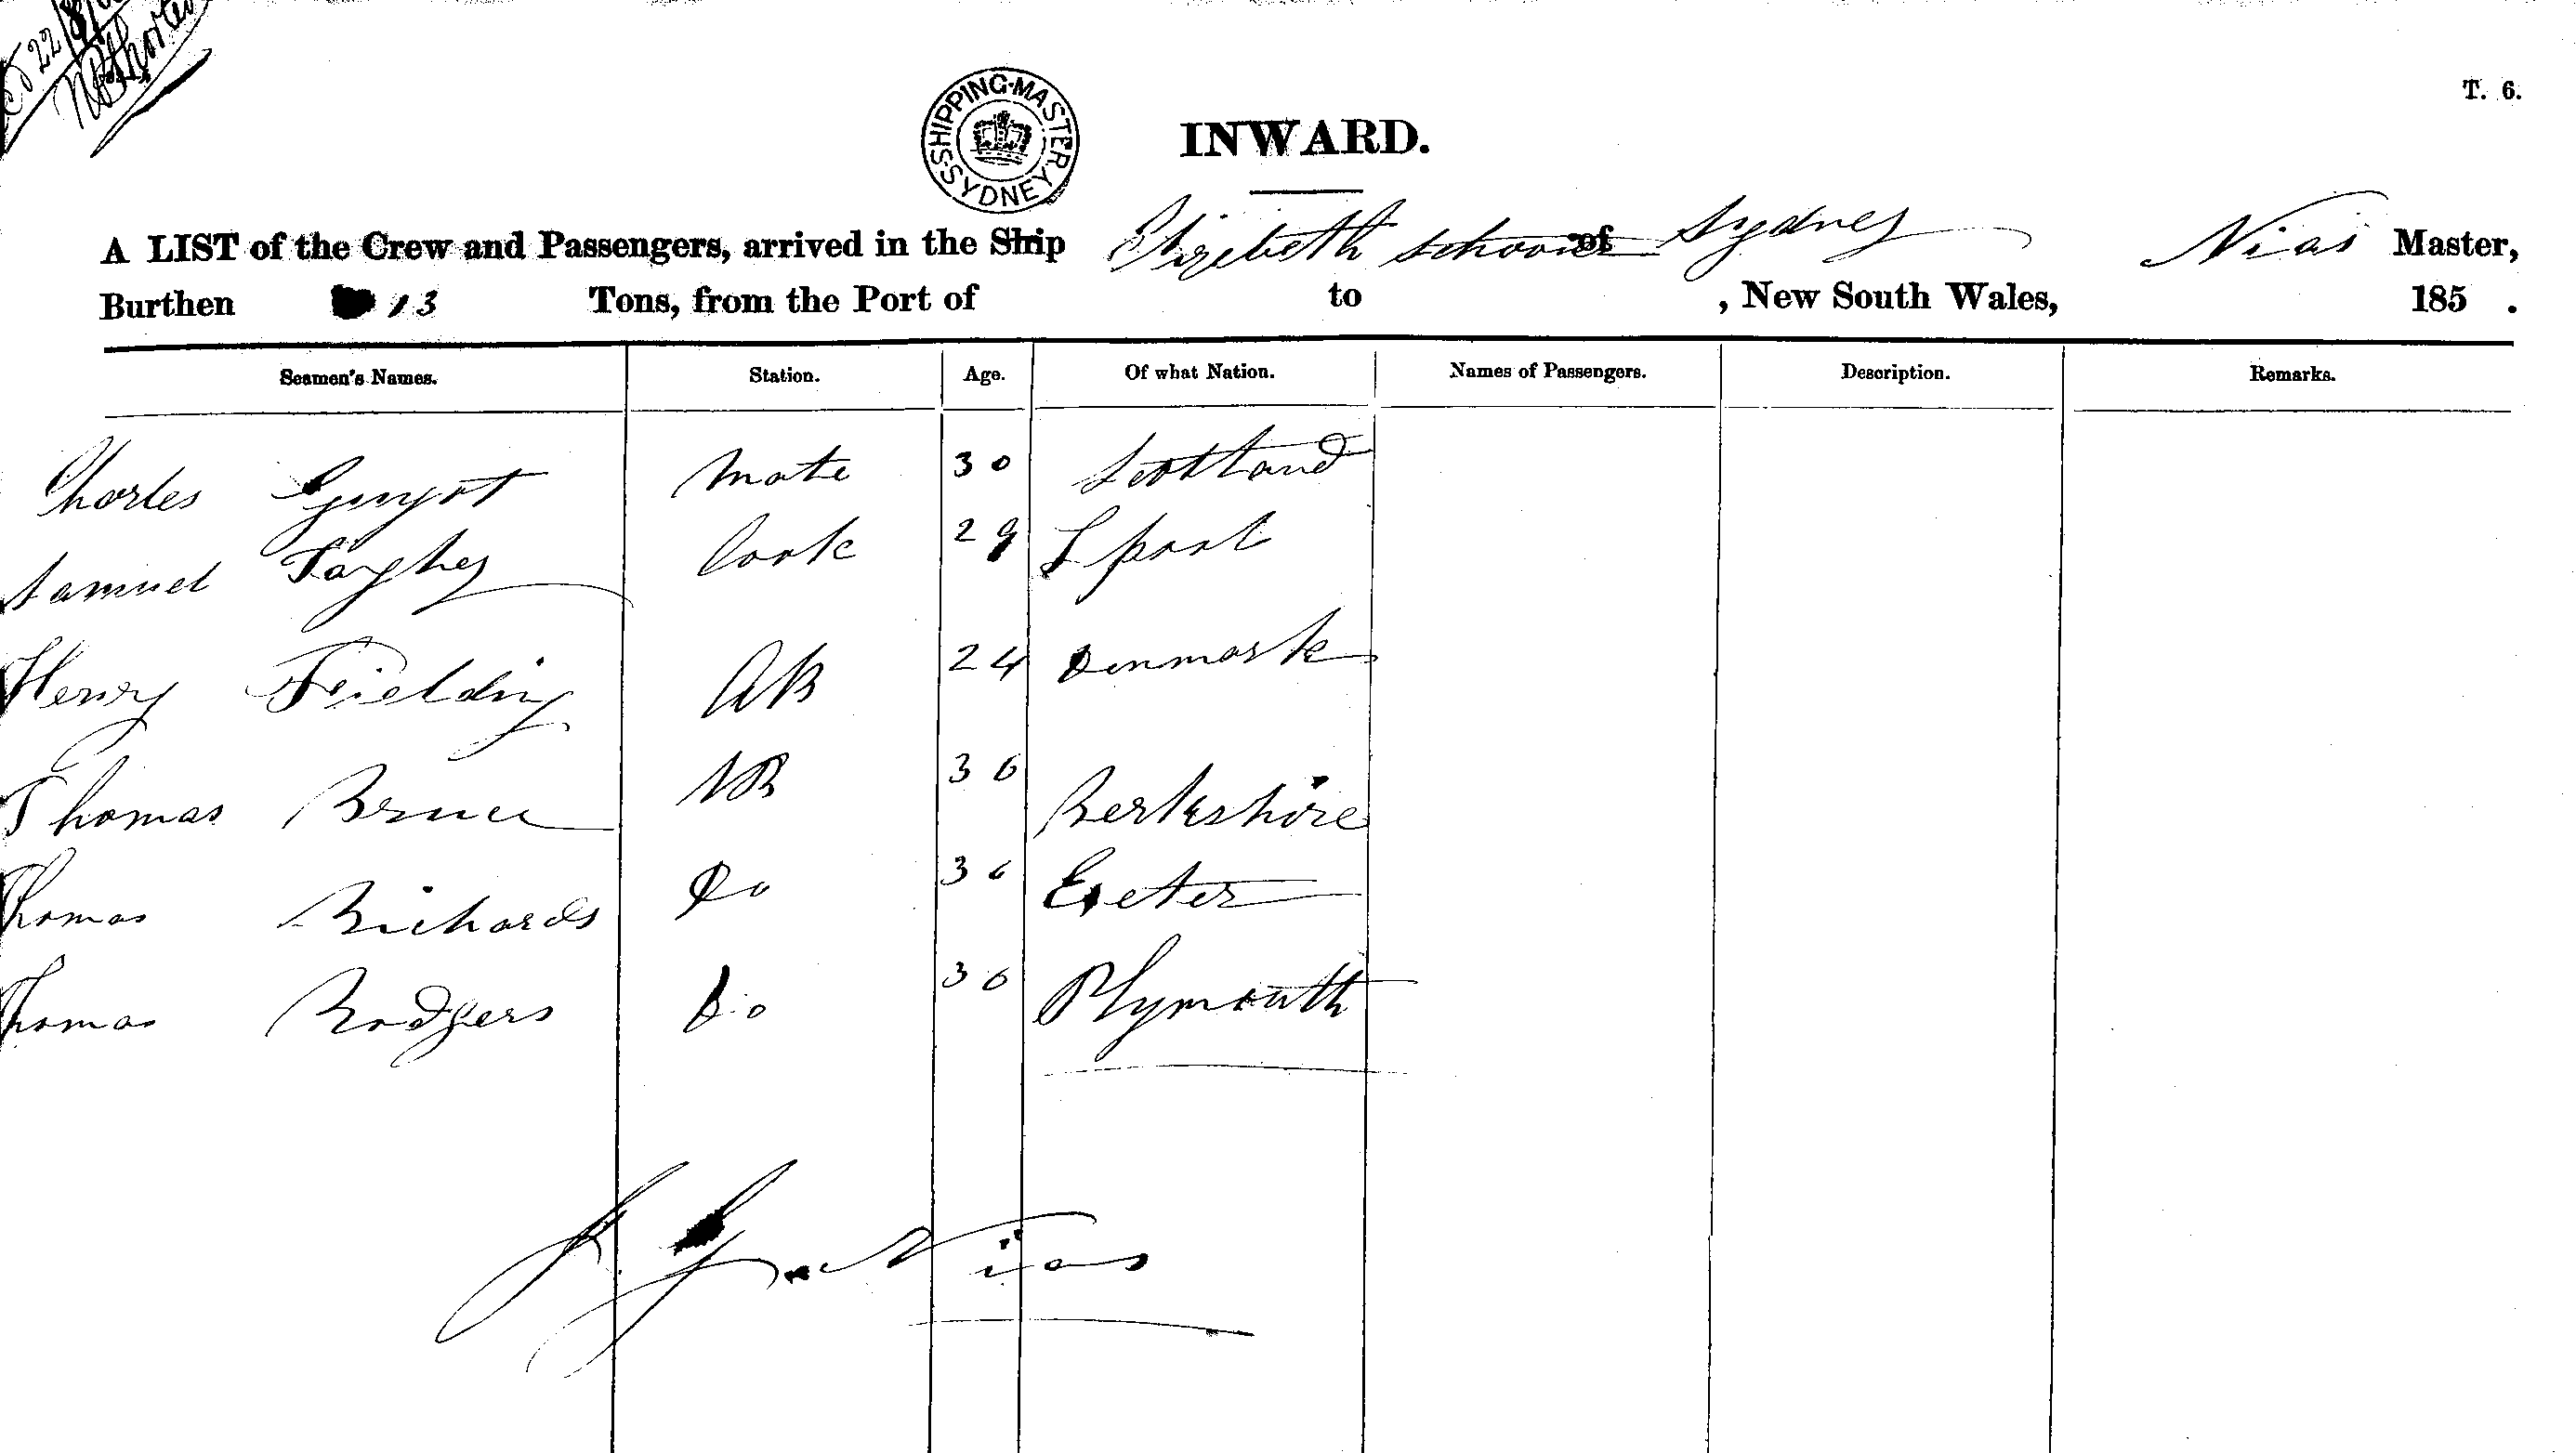 22/8/
T. 6.
SHIPPING·MASTER·SYDNEY·
INWARD.
A LIST of the Crew and Passengers, arrived in the Ship Elizabeth Schooner of Sydney Nias Master,
Burthen 13 Tons, from the Port of to , New South Wales, 185 .
Seamen's Names. Station. Age. Of what Nation. Names of Passengers. Description. Remarks.
Charles Gunyot Mate 30 Scotland
Samuel Cook 29 Lpool
Henry Fielding AB 24 Denmark
Thomas Bruce AB 36 Berkshire
Thomas Richards Do 36 Exeter
Thomas Rodgers Do 36 Plymouth
Nias